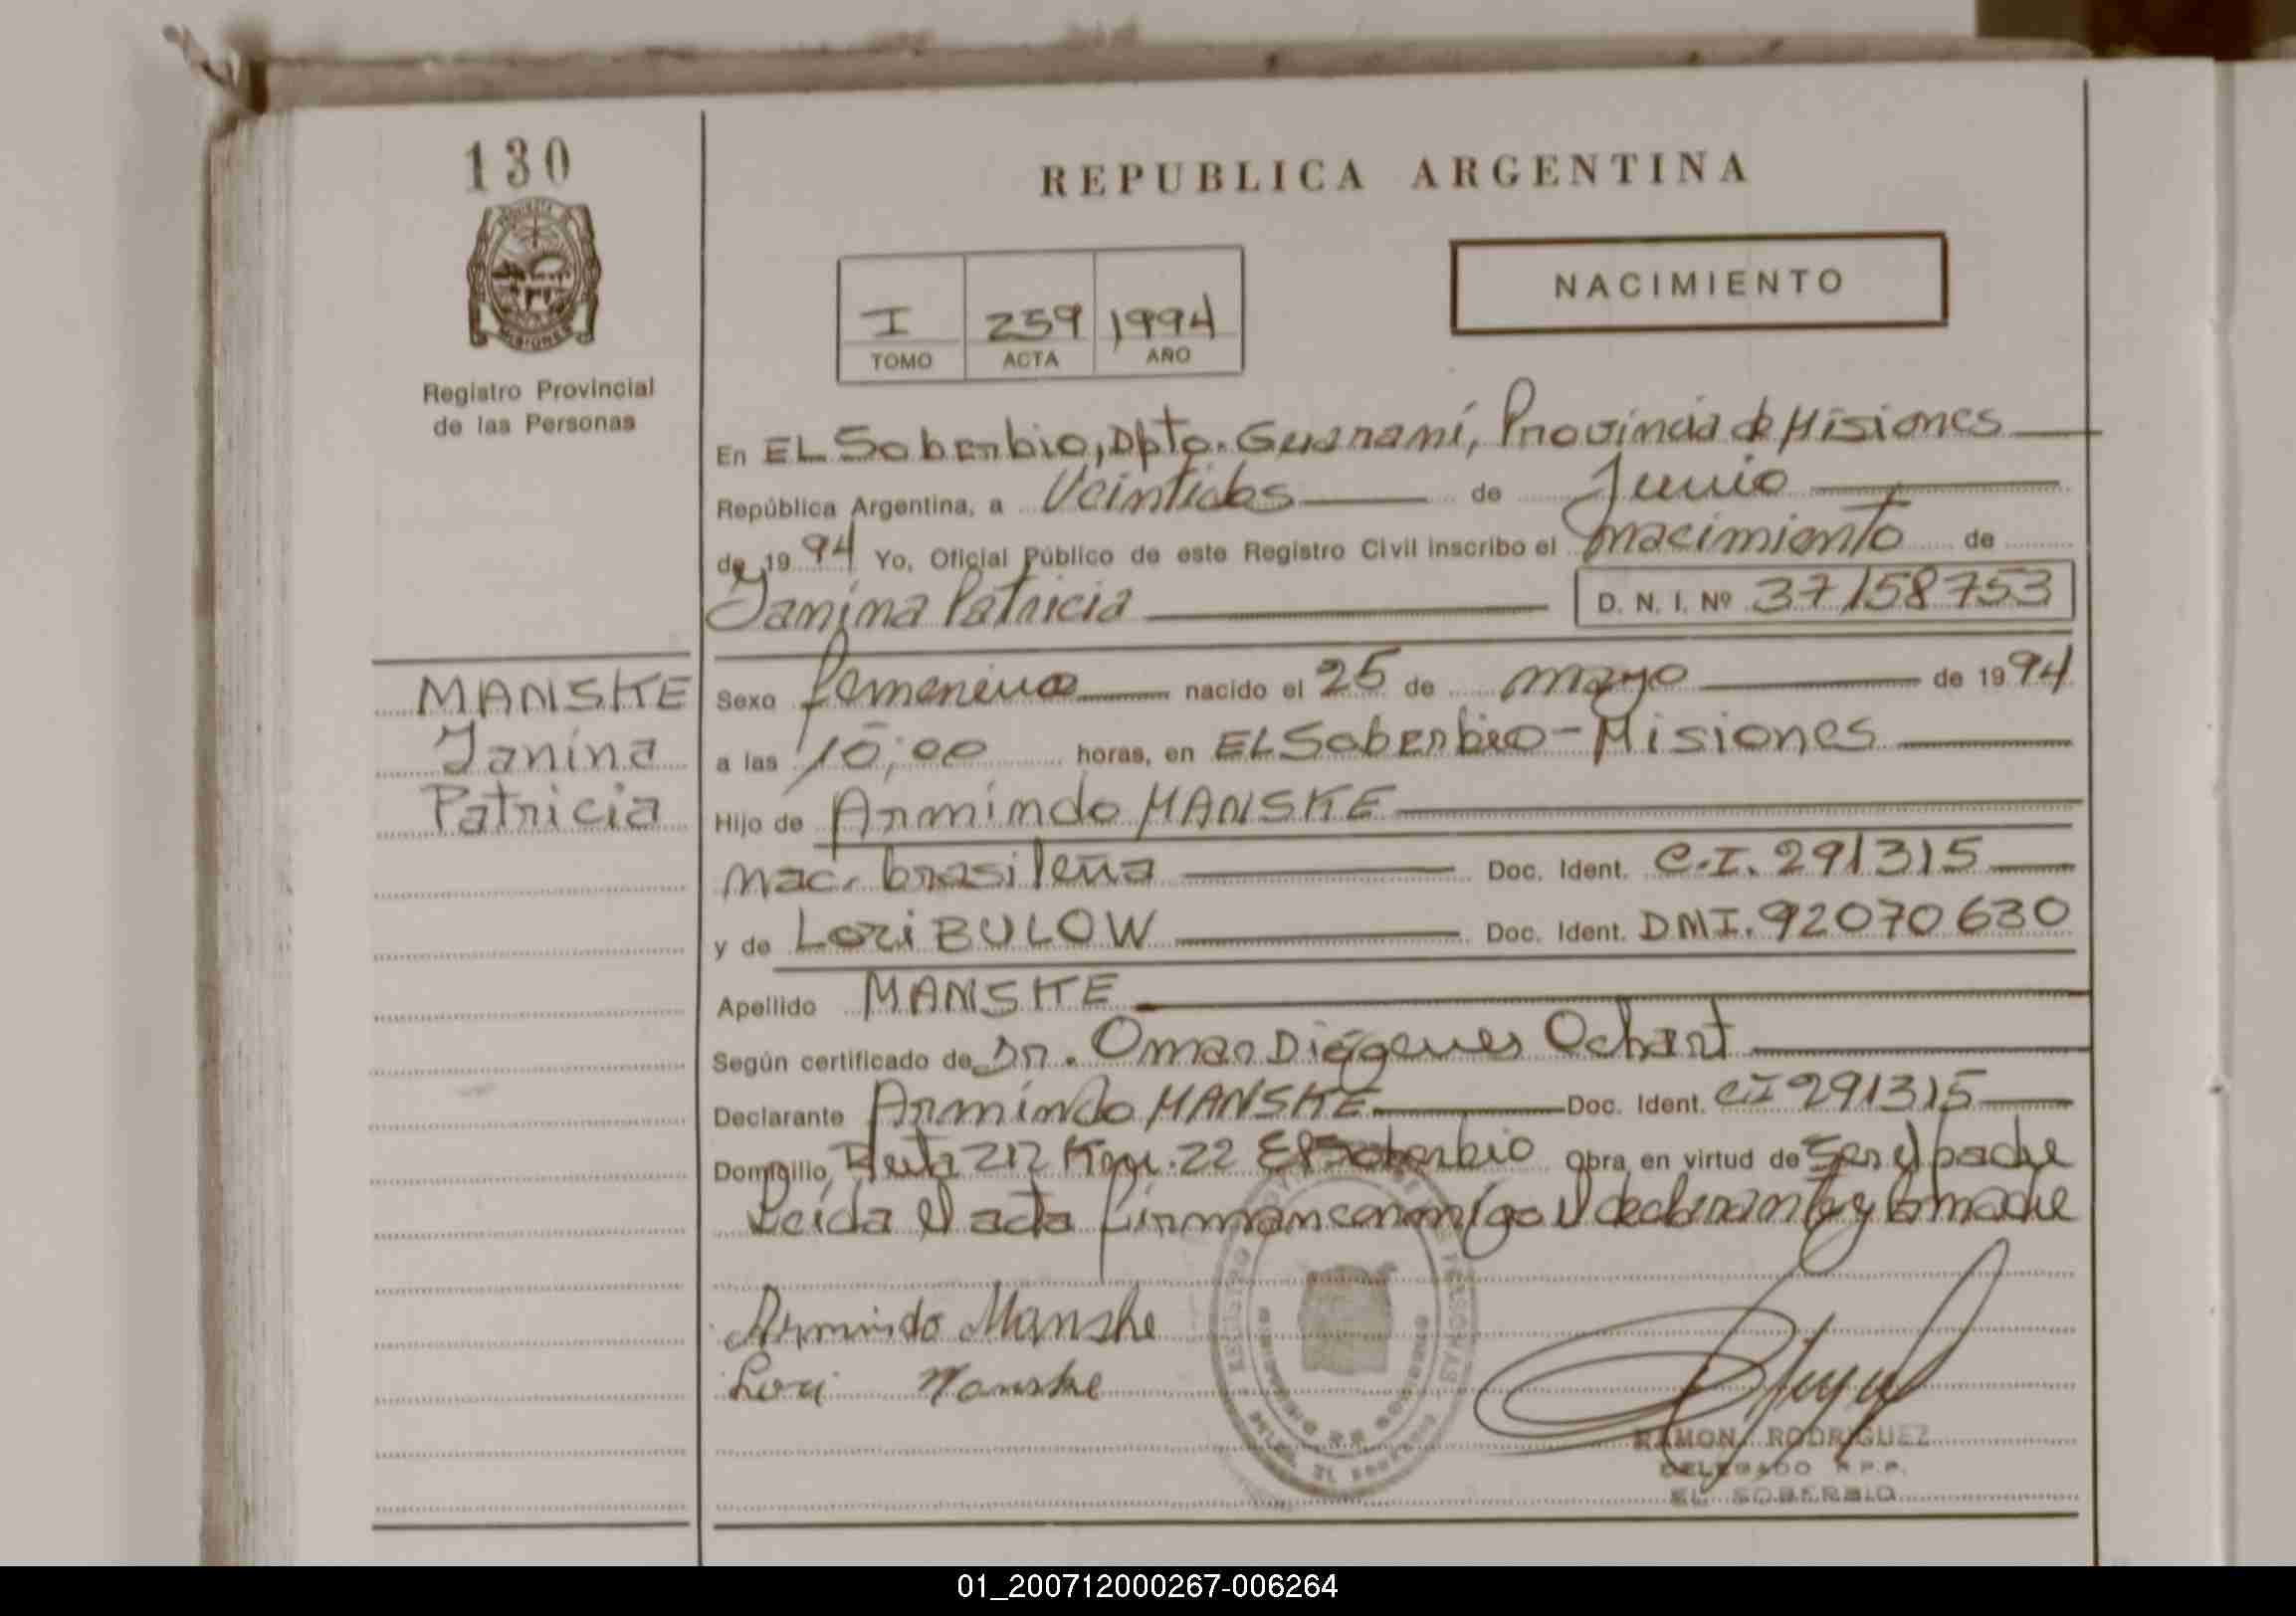 130
REPUBLICA ARGENTINA
NACIMIENTO
I 259 1994
TOMO ACTA AÑO
Registro Provincial
de las Personas
En EL Soberbio, Dpto. Guaraní, Provincia de Misiones
República Argentina, a Veintidos de Junio
de 1994 Yo, Oficial Público de este Registro Civil inscribo el nacimiento de
Janina Patricia D. N. I. Nº 37158753
MANSKE
Janina
Patricia
Sexo femenino nacido el 25 de mayo de 1994
a las 10,00 horas, en EL Soberbio - Misiones
Hijo de Armindo MANSKE
nac. brasileña Doc. Ident. C.I. 291315
y de Lori BULOW Doc. Ident. DNI. 92070630
Apellido MANSKE
Según certificado de Dr. Omar Diógenes Ochart
Declarante Armindo MANSKE Doc. Ident. CI 291315
Domicilio Ruta 212 Km. 22 El Soberbio Obra en virtud de ser el padre
Leida el acta firman conmigo el declarante y la madre
Armindo Manske
Lori Manske
RAMON RODRIGUEZ
DELEGADO R.P.P.
EL SOBERBIO
01_200712000267-006264